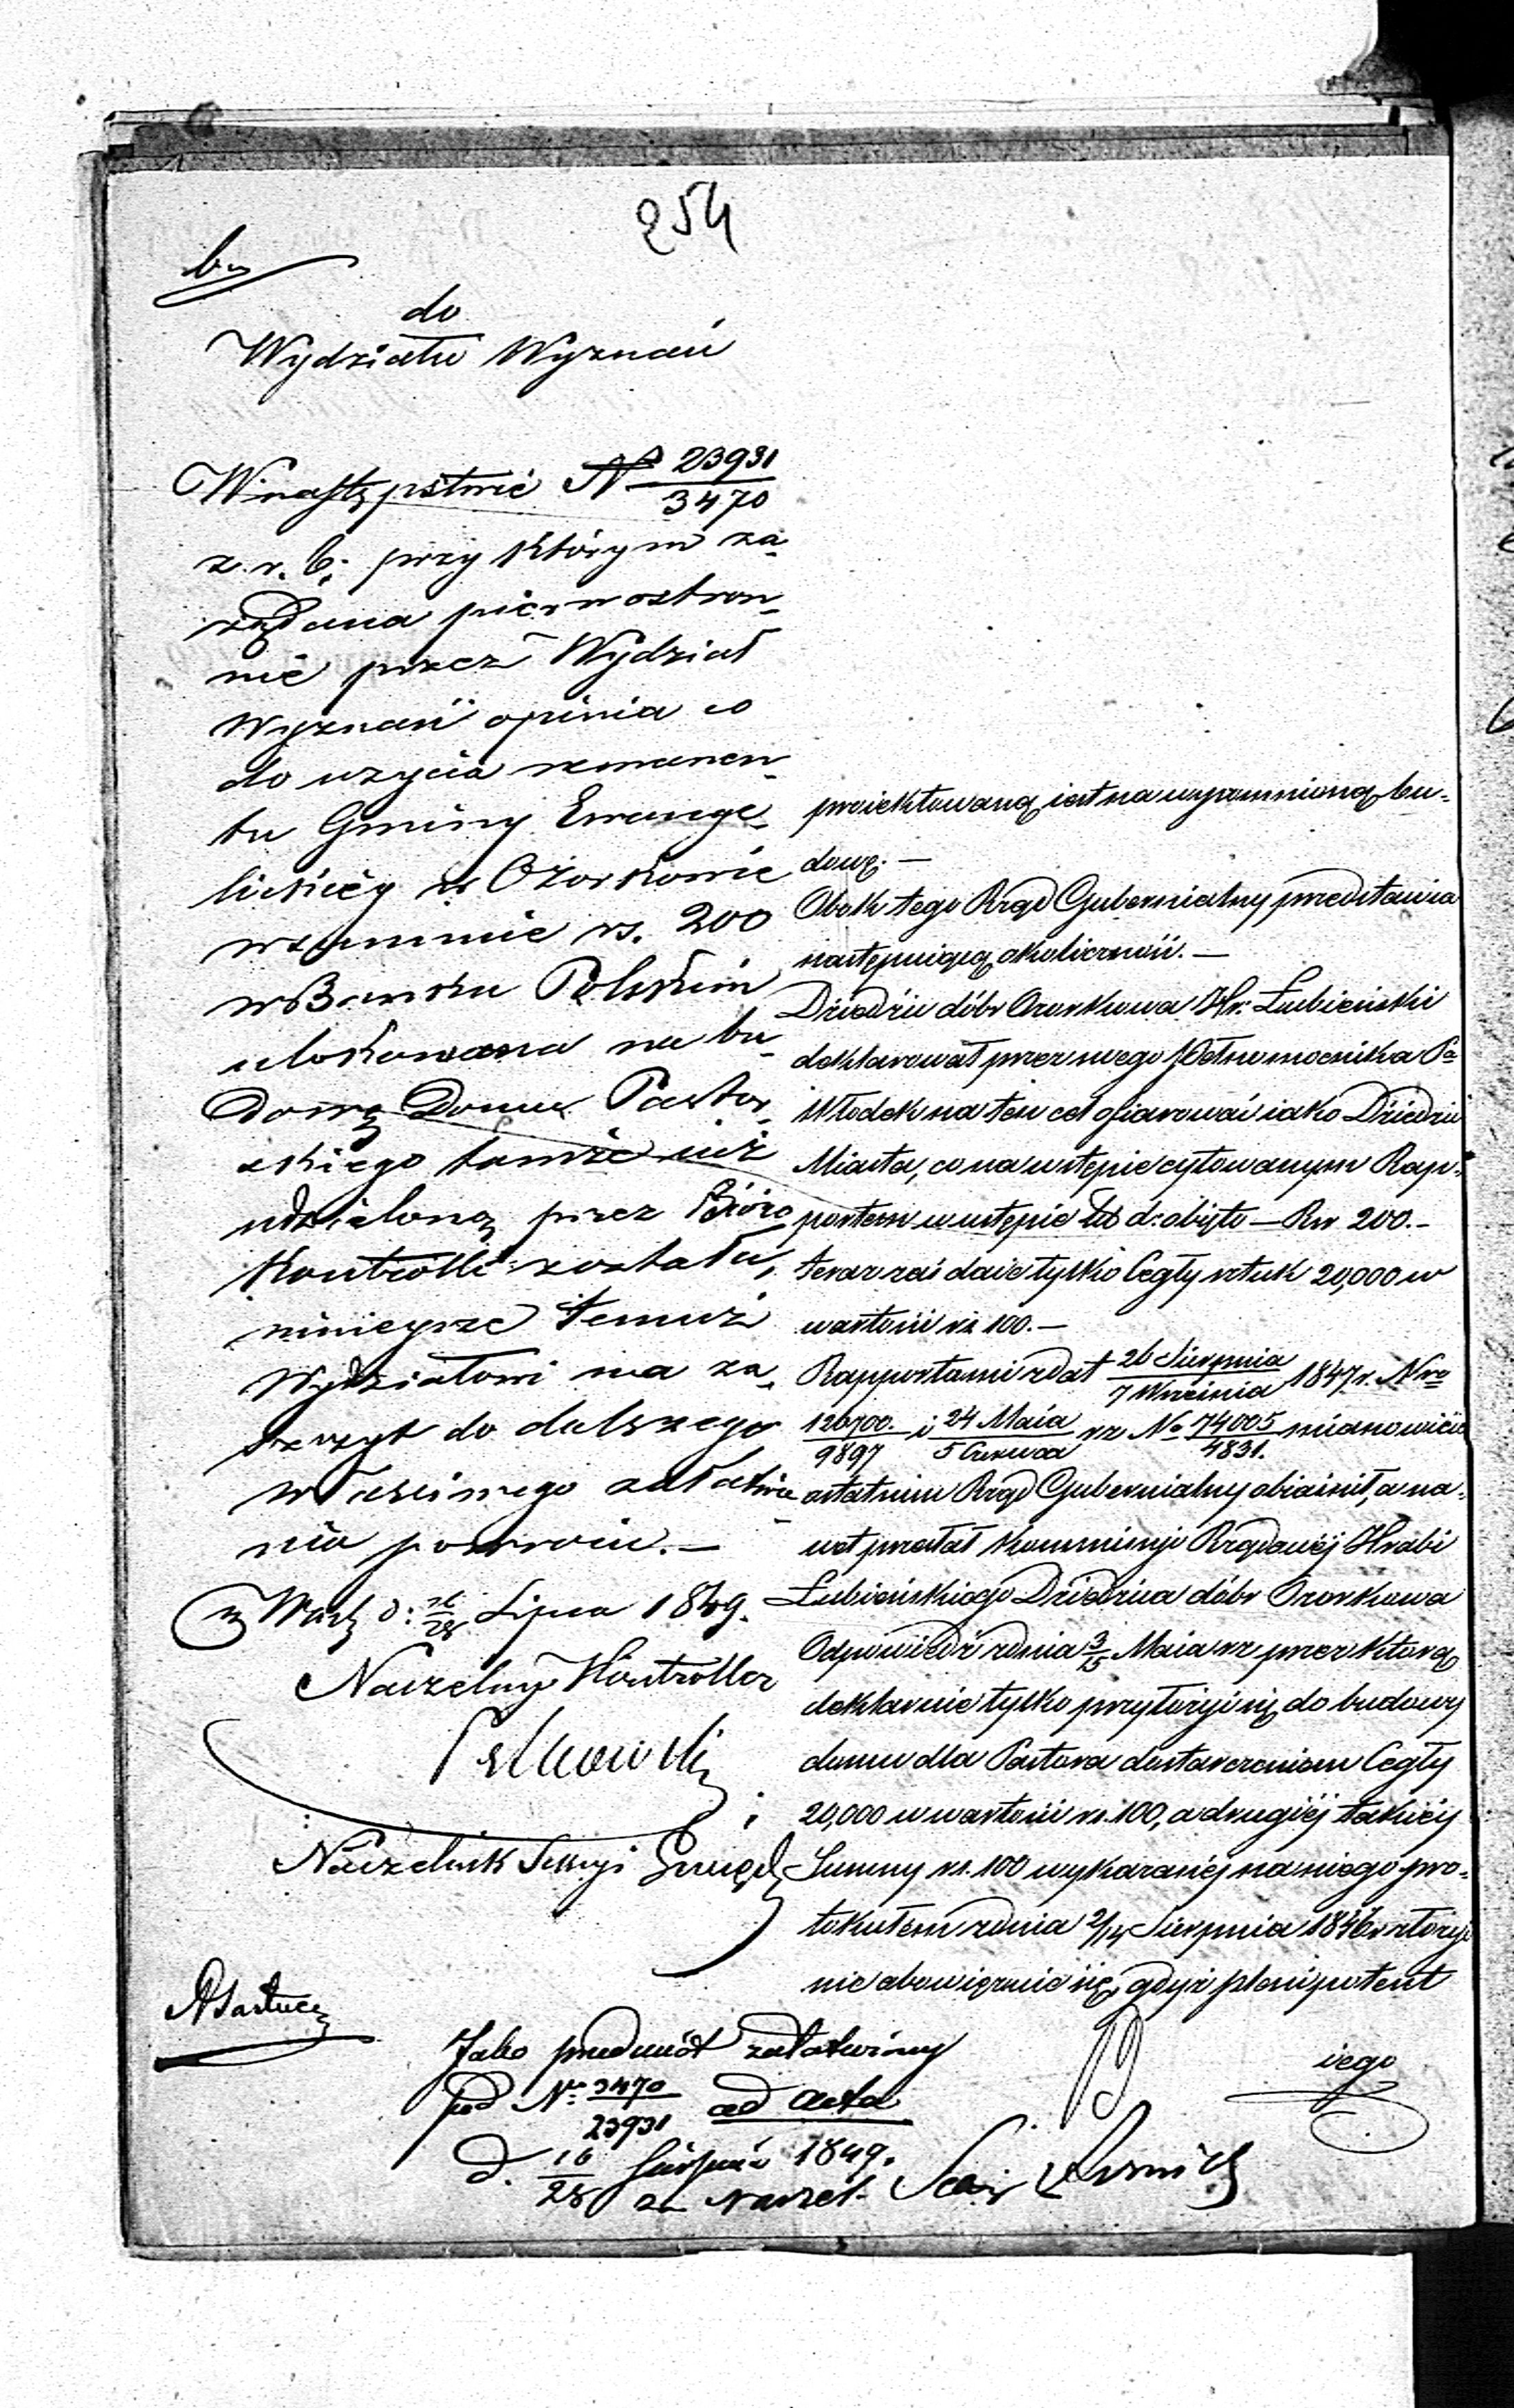 254
do
Wydziału Wyznań
W następstwie N 23931/3470
z. r. b. przy którym za-
żądana pierwostron-
nie przez Wydział
Wyznań opinia co
do użycia remanen-
tu Gminy Ewange-
lickiéy w Ozorkowie
w summie rs. 200
w Banku Polskim
ulokowana na bu-
dowę Domu Pastor-
skiego tamże już
udzieloną przez Bióro
Kontrolli została,
ninieysze temuż
Wydziałowi ma za-
szczyt do dalszego
właściwego załatwie-
nia powrócić. —
w Warsz d: 16/28 Lipca 1849.
Naczelny Kontroller
Naczelnik Sekcyi
proiektowaną iest na wypomnioną bu-
dowę. —
Obok tego Rząd Gubernialny przedstawia
następuiącą okoliczność. —
Dziedzic dóbr Ozorkowa Hr: Łubieński
deklarował przez swego Pełnomocnika Pa
Włodek na ten cel ofiarować iako Dziedzic
Miasta, co na wstępie cytowanym Rap-
portem w ustępie lit d: obięto — Rsr 200. —
teraz zaś daie tylko Cegły sztuk 20,000 w
wartości rs 100. —
Rapportami z dat 26 Sierpnia/7 Września 1847 r. Nro
120700/9897 i 24 Maia/5 Czerwca rz No 74005/4831. mianowicie
ostatnim Rząd Gubernialny obiaśnił, a na-
wet przesłał Kommissyi Rządowéj Hrabi
Łubieńskiego Dziedzica dóbr Ozorkowa
Odpowiedź z dnia 3/15 Maia rz przez którą
deklaruie tylko przyłożyć się do budowy
domu dla Pastora dostarczeniem Cegły
20,000 w wartości rs. 100, a drugiéj takiéj
Summy rs. 100 wykazanéj na niego pro-
tokułem z dnia 2/14 Sierpnia 1846 r złożyć
nie obowięzuie się, gdyż plenipotent
iego
Jako przedmiót załatwiony
pod No 3470/23931 ad acta
d. 16/28 Sierpnia 1849.
za Naczel. Sekcyi